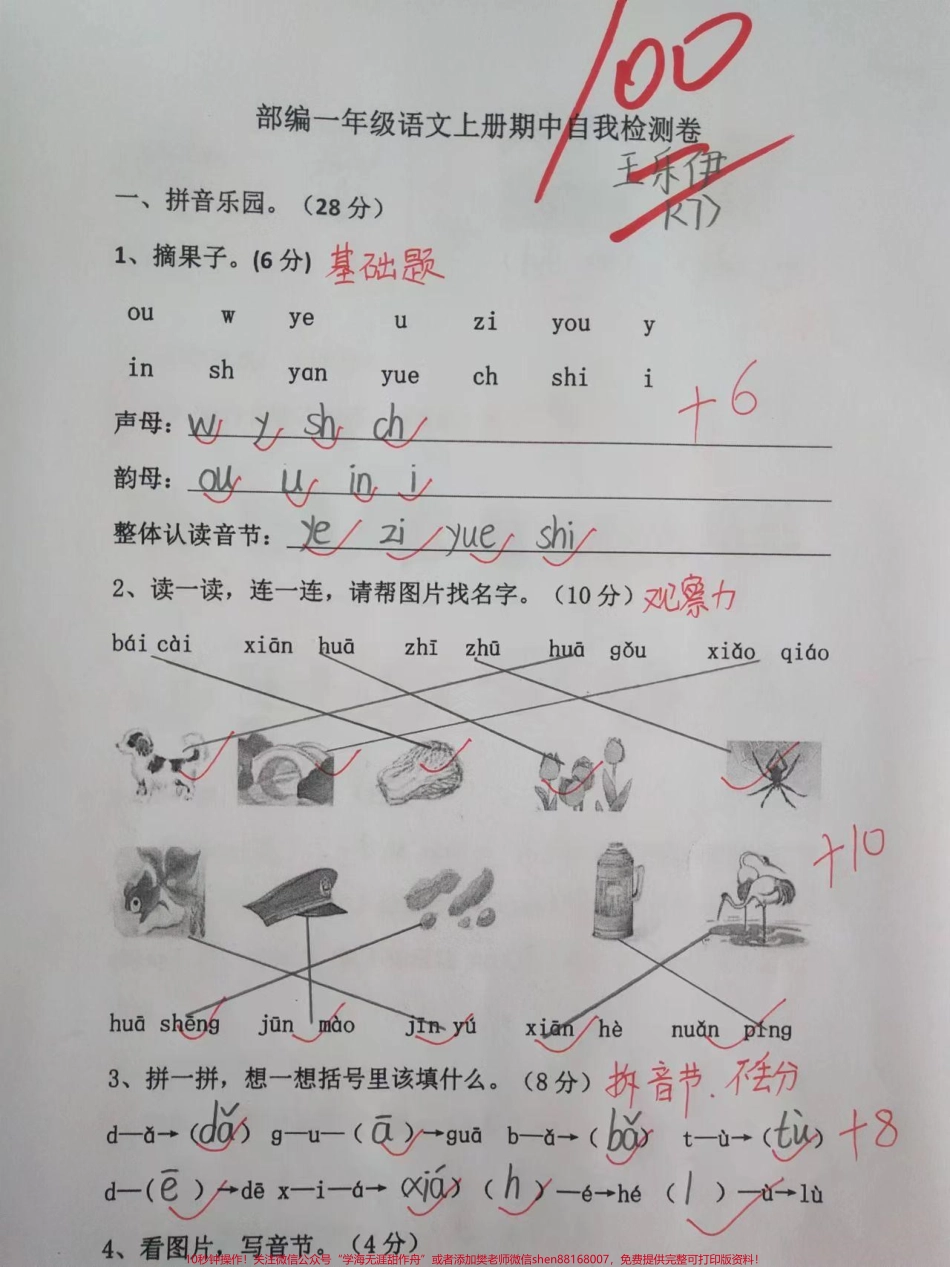 100
部编一年级语文上册期中自我检测卷
王乐伊
一、拼音乐园。（28 分）
1、摘果子。(6 分) 基础题
ou w ye u zi you y
in sh yɑn yue ch shi i
+6
声母： w y sh ch
韵母： ou u in i
整体认读音节： ye zi yue shi
2、读一读，连一连，请帮图片找名字。（10 分）观察力
bái cài xiān huā zhī zhū huā gǒu xiǎo qiáo
+10
huā shēng jūn mào jīn yú xiān hè nuǎn píng
3、拼一拼，想一想括号里该填什么。（8 分）拆音节.不丢分
d—ǎ→（dǎ） g—u—（ā）→guā b—ǎ→（bǎ） t—ù→（tù） +8
d—（ē）→dē x—i—á→（xiá）（h）—é→hé （l）—ù→lù
4、看图片，写音节。（4 分）
10秒钟操作！关注微信公众号“学海无涯甜作舟”或者添加樊老师微信shen88168007，免费提供完整可打印版资料！